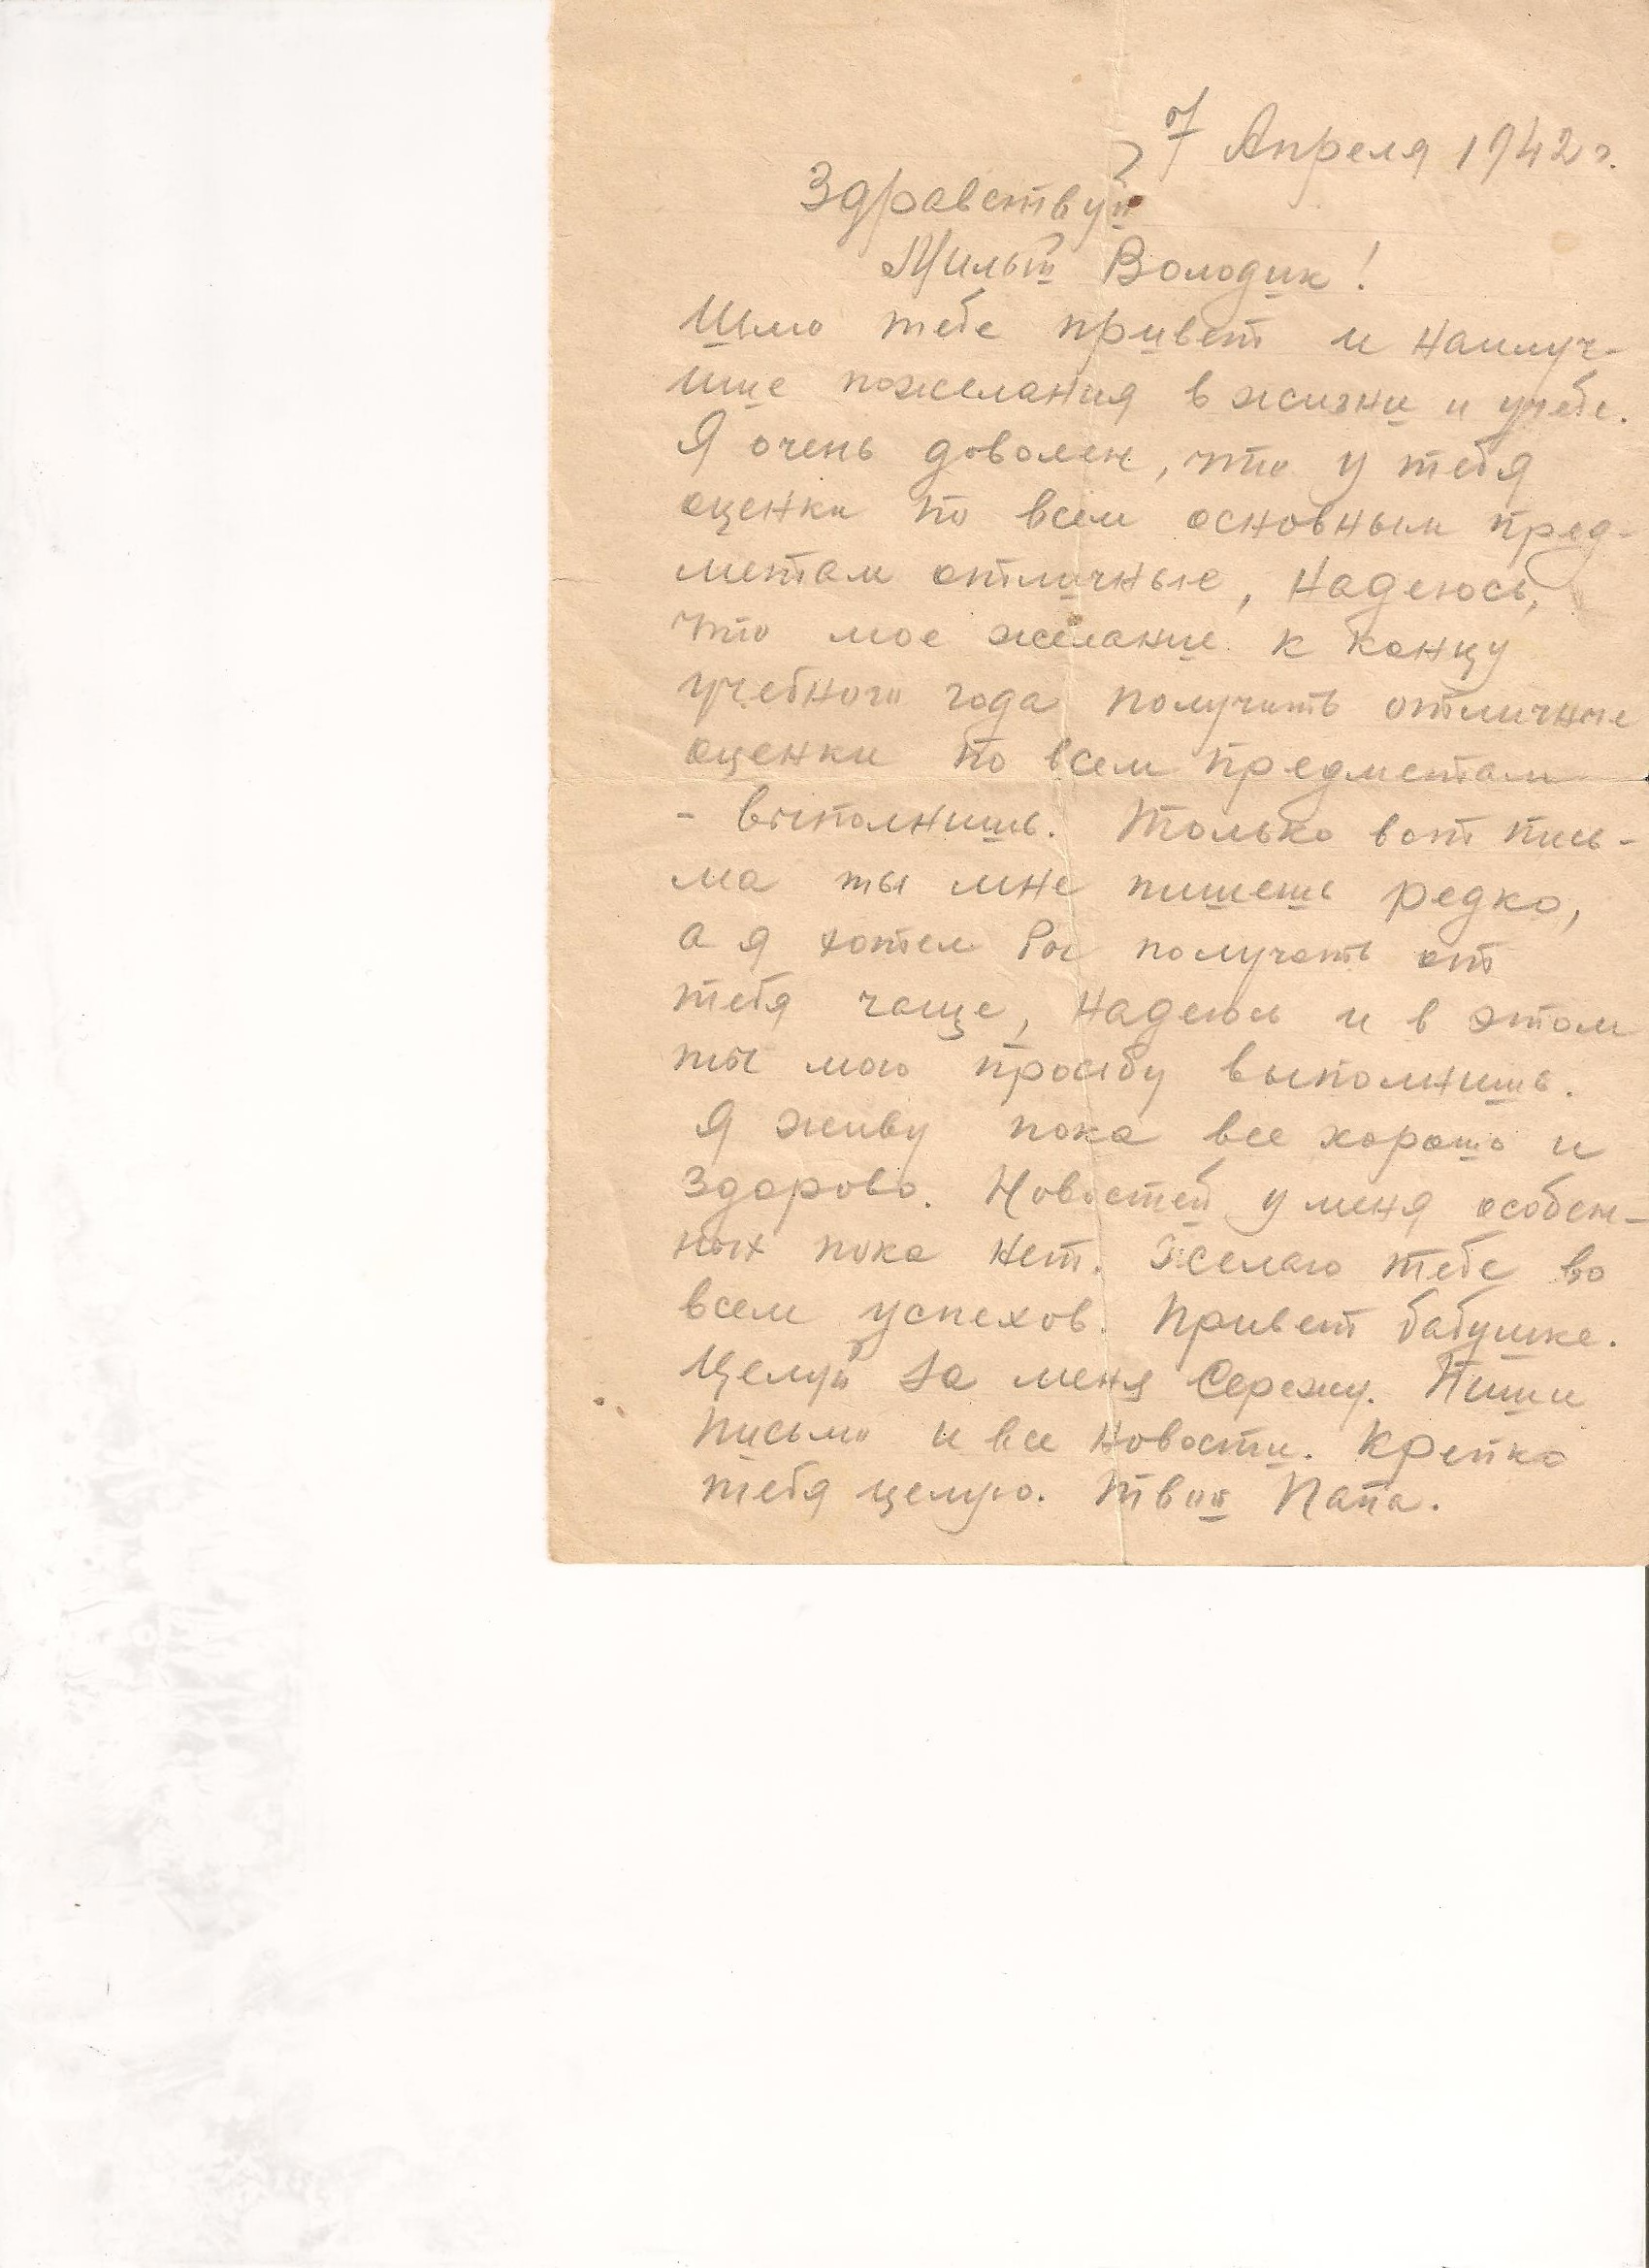 7 Апреля 1942 г.
Здравствуй
Милый Володик!
Шлю тебе привет и наилуч-
шие пожелания в жизни и учебе.
Я очень доволен, что у тебя
оценки по всем основным пред-
метам отличные, надеюсь,
что мое желание к концу
учебного года получить отличные
оценки по всем предметам
- выполнишь. Только вот пись-
ма ты мне пишешь редко,
а я хотел бы получать от
тебя чаще, надеюсь и в этом
ты мою просьбу выполнишь.
Я живу пока все хорошо и
здорово. Новостей у меня особен-
ных пока нет. Желаю тебе во
всем успехов. Привет бабушке.
Целуй за меня Сережу. Пиши
письма и все новости. Крепко
тебя целую. Твой Папа.